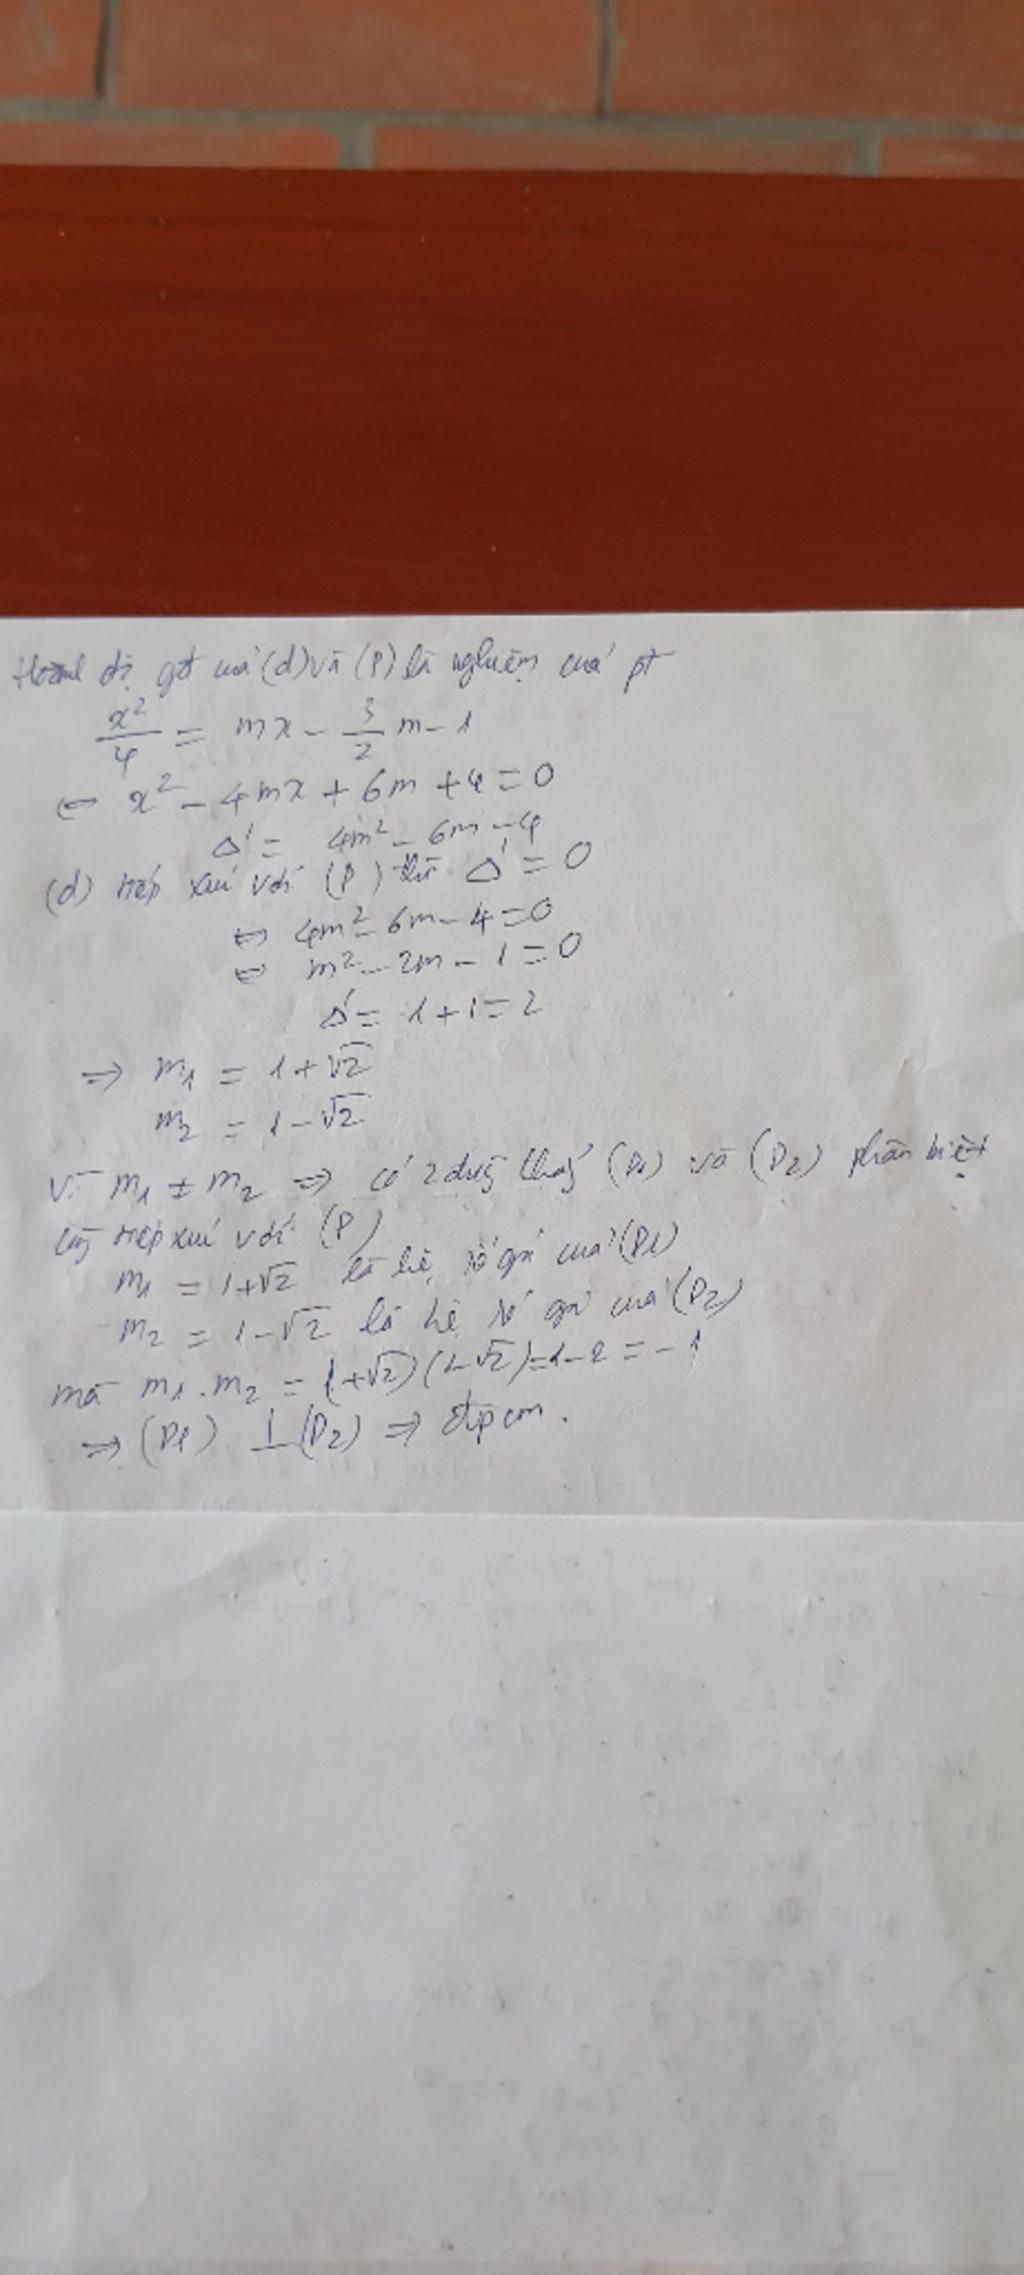 Hoành độ gđ của (d) và (P) là nghiệm của pt
x²/4 = mx - 3/2 m - 1
⇔ x² - 4mx + 6m + 4 = 0
Δ' = 4m² - 6m - 4
(d) tiếp xúc với (P) thì Δ' = 0
⇔ 4m² - 6m - 4 = 0
⇔ m² - 2m - 1 = 0
Δ' = 1 + 1 = 2
⇒ m₁ = 1 + √2
m₂ = 1 - √2
Vì m₁ ≠ m₂ ⇒ có 2 đường thẳng (D₁) và (D₂) phân biệt
cùng tiếp xúc với (P)
m₁ = 1 + √2 là hệ số góc của (D₁)
m₂ = 1 - √2 là hệ số góc của (D₂)
mà m₁ . m₂ = (1 + √2) (1 - √2) = 1 - 2 = - 1
⇒ (D₁) ⊥ (D₂) ⇒ đpcm .